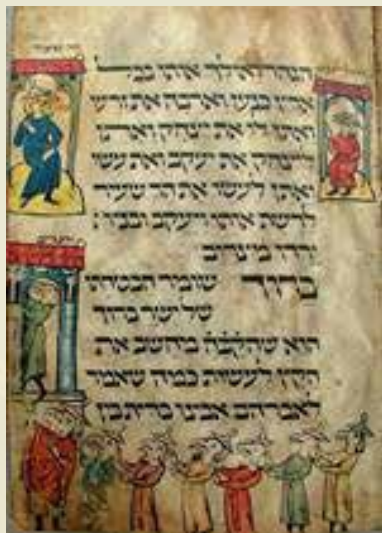 הנהר ואולך אותו בכל
ארץ כנען וארבה את זרעו
ואתן לו את יצחק ואתן
ליצחק את יעקב ואת עשו
ואתן לעשו את הר שעיר
לרשת אותו ויעקב ובניו
ירדו מצרים
ברוך שומר הבטחתו
של ישר ברוך
הוא שהקבה מחשב את
הקץ לעשות כמה שאמר
לאברהם אבינו ברית בין